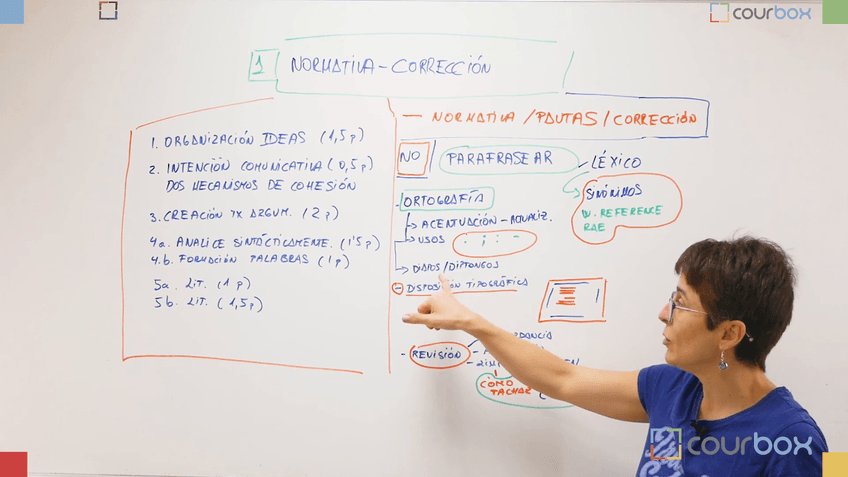 courbox
1 NORMATIVA - CORRECCIÓN
1. ORGANIZACIÓN IDEAS (1,5 p)
2. INTENCIÓN COMUNICATIVA (0,5 p)
DOS MECANISMOS DE COHESIÓN
3. CREACIÓN TX ARGUM. (2 p)
4a. ANALICE SINTÁCTICAMENTE. (1'5 p)
4.b. FORMACIÓN PALABRAS (1 p)
5a. LIT. (1 p)
5b. LIT. (1,5 p)
— NORMATIVA / PAUTAS / CORRECCIÓN
NO PARAFRASEAR
LÉXICO
SINÓNIMOS
W. REFERENCE
RAE
- ORTOGRAFÍA
ACENTUACIÓN - ACTUALIZ.
USOS . ; : -
/DIPTONGOS
- DISPOSICIÓN TIPOGRÁFICA
- REVISIÓN
CÓMO
TACHAR
courbox